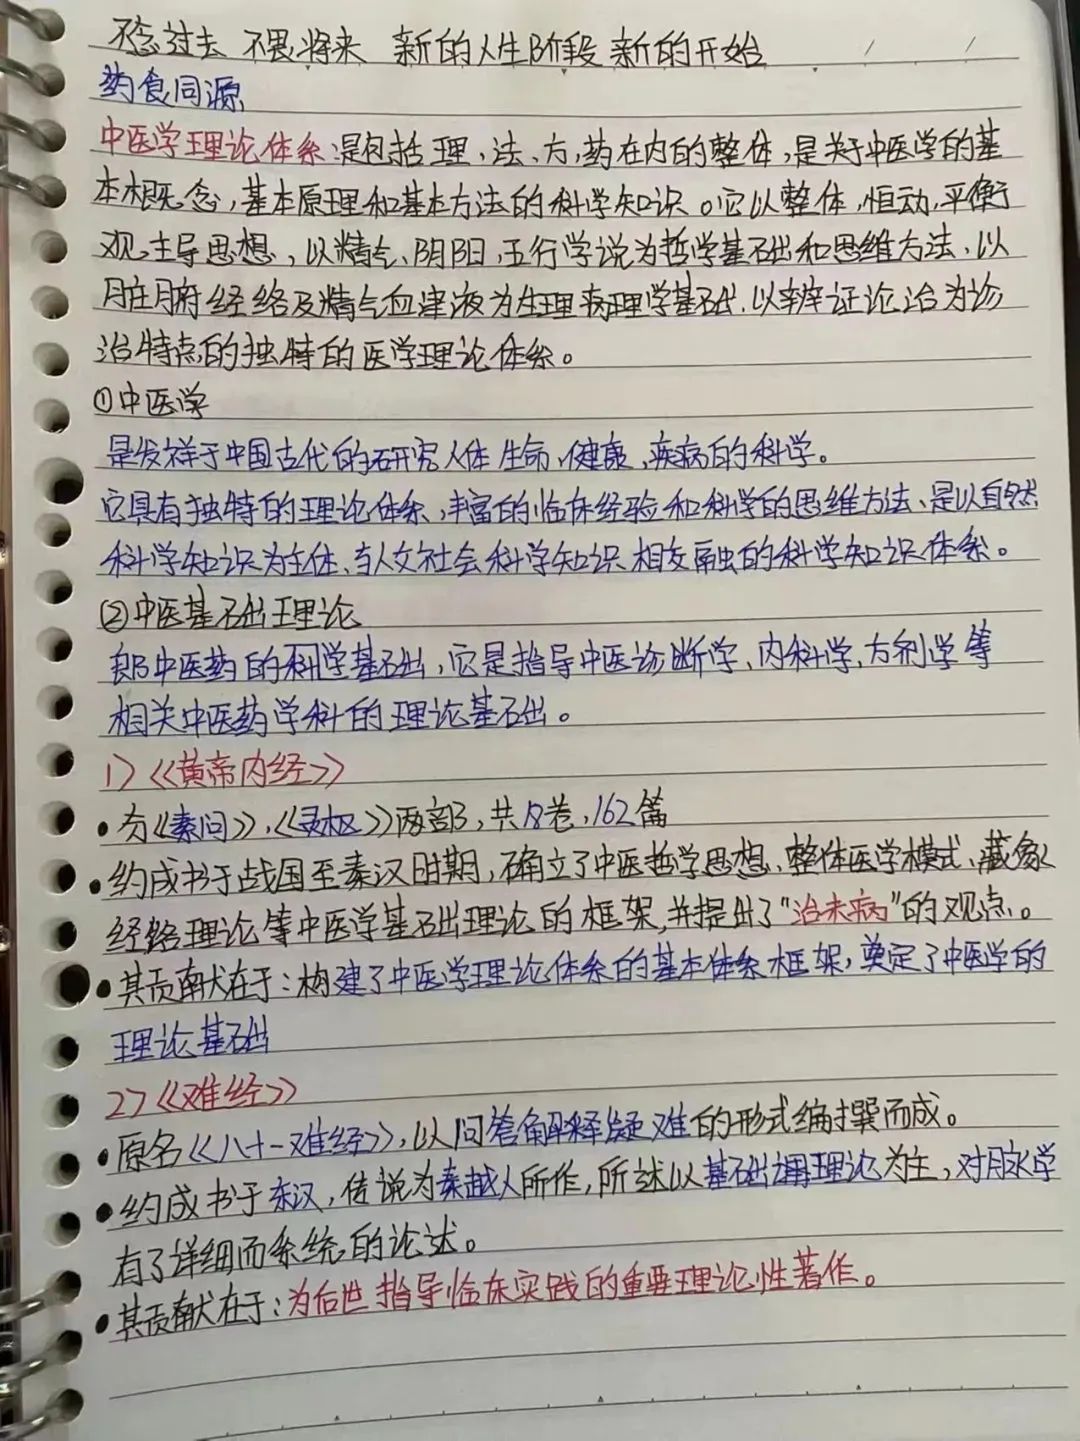 不念过去 不畏将来 新的人生阶段 新的开始
药食同源
中医学理论体系:是包括理、法、方、药在内的整体,是关于中医学的基
本概念,基本原理和基本方法的科学知识。它以整体,恒动,平衡
观主导思想,以精气、阴阳、五行学说为哲学基础和思维方法、以
脏腑经络及精气血津液为生理病理学基础.以辨证论治为诊
治特点的独特的医学理论体系。
①中医学
是发祥于中国古代的研究人体生命、健康、疾病的科学。
它具有独特的理论体系,丰富的临床经验和科学的思维方法、是以自然
科学知识为主体、与人文社会科学知识相交融的科学知识体系。
②中医基础理论
即中医药的科学基础,它是指导中医诊断学、内科学、方剂学等
相关中医药学科的理论基础。
1>《黄帝内经》
•分《素问》、《灵枢》两部,共18卷,162篇
•约成书于战国至秦汉时期,确立了中医哲学思想、整体医学模式、藏象
经络理论等中医学基础理论的框架,并提出了"治未病"的观点。
•其贡献在于:构建了中医学理论体系的基本体系框架,奠定了中医学的
理论基础
2>《难经》
•原名《八十一难经》,以问答解释疑难的形式编撰而成。
•约成书于东汉,传说为秦越人所作,所述以基础理论为主,对脉学
有了详细而系统的论述。
•其贡献在于:为后世指导临床实践的重要理论性著作。